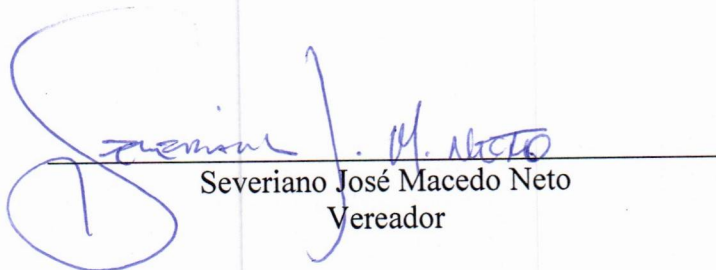 Severiano J. M. Neto
Severiano José Macedo Neto
Vereador